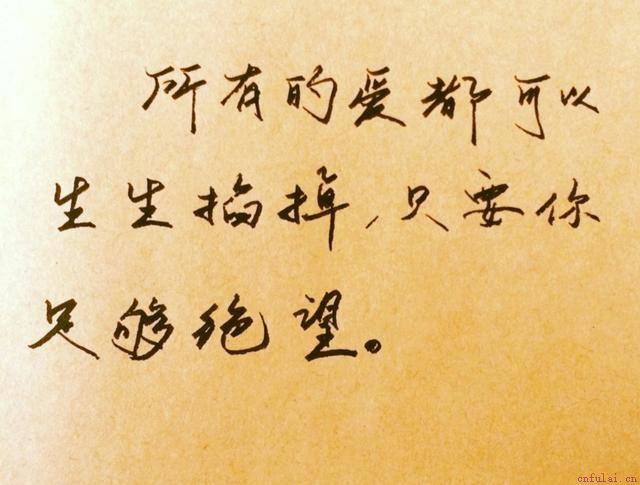 所有的爱都可以
生生掐掉,只要你
足够绝望。
cnfulai.cn